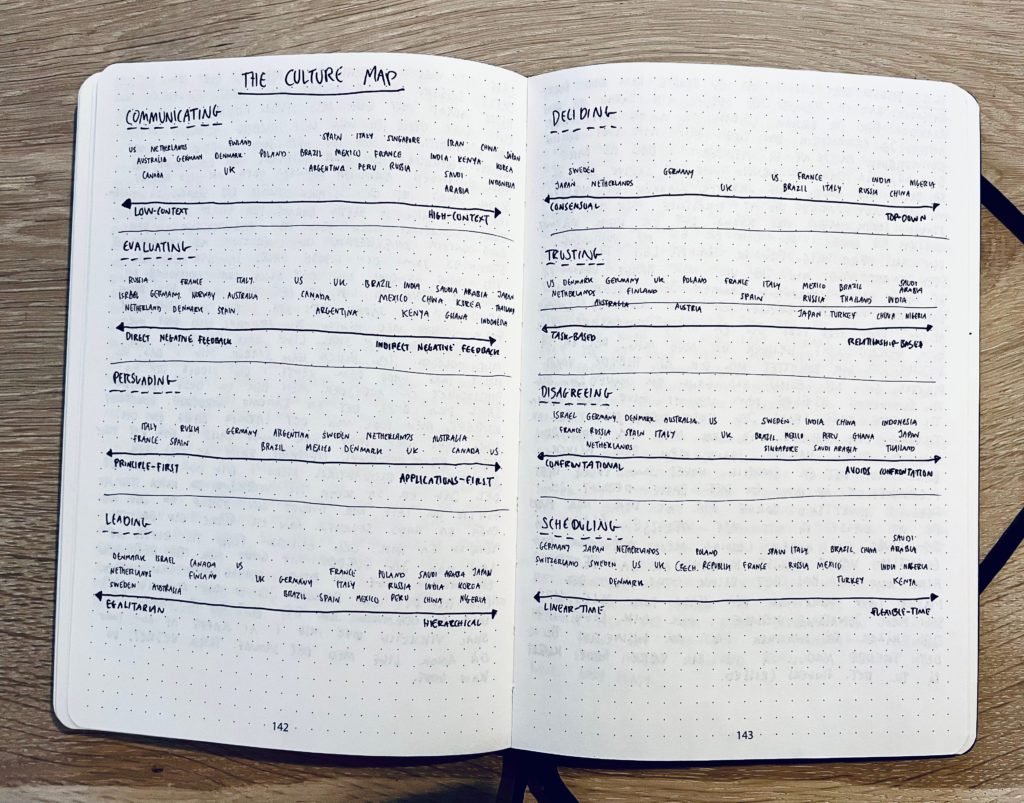 THE CULTURE MAP
COMMUNICATING
SPAIN · ITALY · SINGAPORE · IRAN · CHINA · JAPAN
US NETHERLANDS FINLAND
AUSTRALIA · GERMANY DENMARK · POLAND · BRAZIL MEXICO · FRANCE INDIA · KENYA · KOREA
CANADA UK ARGENTINA · PERU · RUSSIA SAUDI ARABIA INDONESIA
LOW-CONTEXT HIGH-CONTEXT
EVALUATING
RUSSIA · FRANCE ITALY US UK BRAZIL · INDIA · SAUDIA ARABIA · JAPAN
ISRAEL GERMANY NORWAY · AUSTRALIA CANADA MEXICO, CHINA, KOREA · THAILAND
NETHERLAND, DENMARK, SPAIN ARGENTINA KENYA GHANA INDONESIA
DIRECT NEGATIVE FEEDBACK INDIRECT NEGATIVE FEEDBACK
PERSUADING
ITALY RUSSIA GERMANY ARGENTINA SWEDEN NETHERLANDS AUSTRALIA
FRANCE SPAIN BRAZIL MEXICO · DENMARK UK CANADA US
PRINCIPLE-FIRST APPLICATIONS-FIRST
LEADING
DENMARK ISRAEL CANADA US FRANCE POLAND SAUDI ARABIA JAPAN
NETHERLANDS FINLAND UK GERMANY ITALY RUSSIA INDIA KOREA
SWEDEN AUSTRALIA BRAZIL SPAIN · MEXICO · PERU CHINA NIGERIA
EGALITARIAN HIERARCHICAL
142
DECIDING
SWEDEN GERMANY US FRANCE INDIA NIGERIA
JAPAN NETHERLANDS UK BRAZIL ITALY RUSSIA CHINA
CONSENSUAL TOP-DOWN
TRUSTING
US DENMARK GERMANY UK POLAND FRANCE ITALY MEXICO BRAZIL SAUDI ARABIA
NETHERLANDS · FINLAND SPAIN RUSSIA THAILAND INDIA
AUSTRALIA AUSTRIA JAPAN TURKEY CHINA NIGERIA
TASK-BASED RELATIONSHIP-BASED
DISAGREEING
ISRAEL GERMANY, DENMARK AUSTRALIA US SWEDEN INDIA CHINA INDONESIA
FRANCE RUSSIA SPAIN ITALY UK BRAZIL MEXICO PERU GHANA JAPAN
NETHERLANDS SINGAPORE SAUDI ARABIA THAILAND
CONFRONTATIONAL AVOIDS CONFRONTATION
SCHEDULING
GERMANY JAPAN NETHERLANDS POLAND SPAIN ITALY BRAZIL CHINA SAUDI ARABIA
SWITZERLAND SWEDEN US UK CZECH REPUBLIC FRANCE RUSSIA MEXICO INDIA NIGERIA
DENMARK TURKEY KENYA
LINEAR-TIME FLEXIBLE-TIME
143